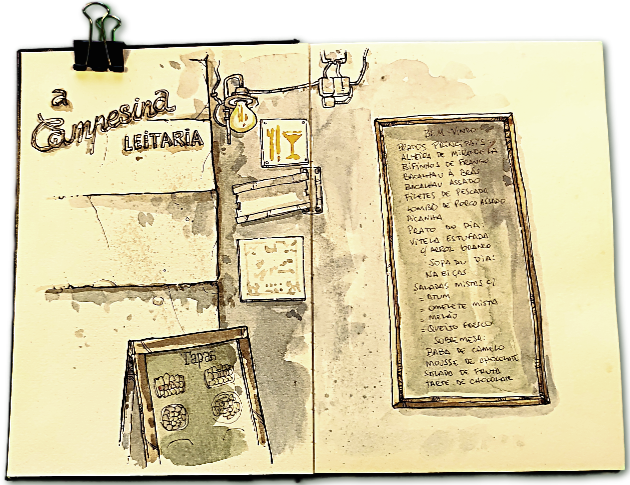 a
Campesina
LEITARIA
Tapas
BEM-VINDO
PRATOS PRINCIPAIS
ALHEIRA DE MIRANDELA
BIFINHOS DE FRANGO
BACALHAU À BRÁS
BACALHAU ASSADO
FILETES DE PESCADA
LOMBO DE PORCO ASSADO
PICANHA
PRATO DO DIA:
VITELA ESTUFADA
C/ ARROZ BRANCO
SOPA DO DIA:
NABIÇAS
SALADAS MISTAS C/
- ATUM
- OMELETE MISTA
- MELÃO
- QUEIJO FRESCO
SOBREMESA:
BABA DE CAMELO
MOUSSE DE CHOCOLATE
SALADA DE FRUTA
TARTE DE CHOCOLATE